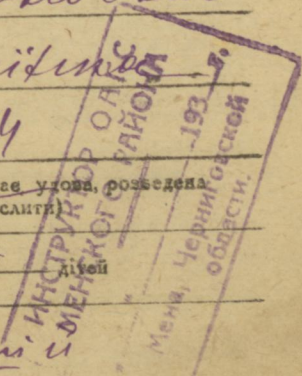 ає удова, розведена
слити)
дітей
ИНСТРУКТОР ОАГС
МЕНСКОГО РАЙОНА
193 г.
Мена, Черниговской
области.